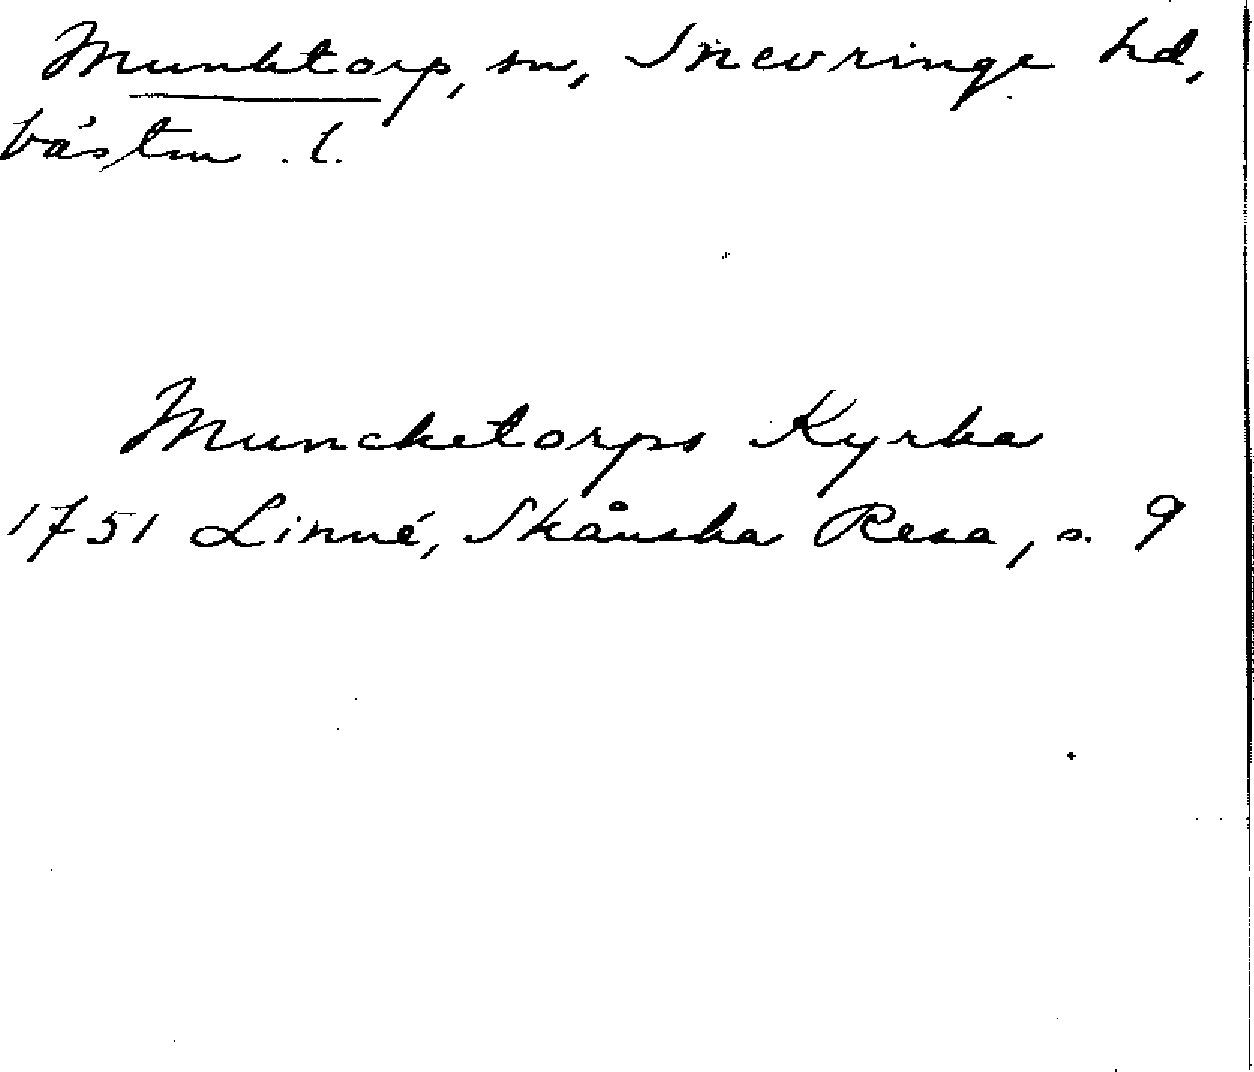 Munktorp, sn, Snevringe hd,
Västm. l.
Muncketorps Kyrka
1751 Linné, Skånska Resa, s. 9